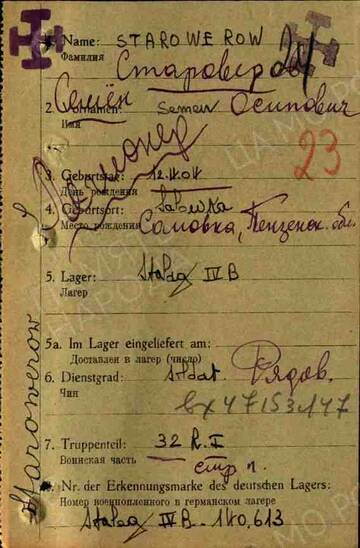 1. Name: STAROWEROW
Фамилия Староверов
2. Vornamen: Semen
Имя Семён Осипович
3. Geburtstag:
День рождения
4. Geburtsort:
Место рождения Саловка, Пензенск. обл.
23
5. Lager: Stalag IV B
Лагерь
5a. Im Lager eingeliefert am:
Доставлен в лагерь (число)
6. Dienstgrad: Soldat Рядов.
Чин
вх 47153.147
7. Truppenteil: 32 R. I
Воинская часть стр п.
8. Nr. der Erkennungsmarke des deutschen Lagers:
Номер военнопленного в германском лагере
Stalag IV B
Starowerow